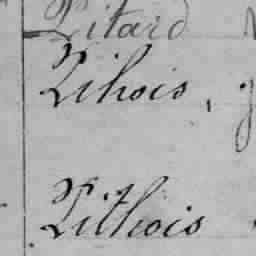 Litard
Lihois,
Lithois